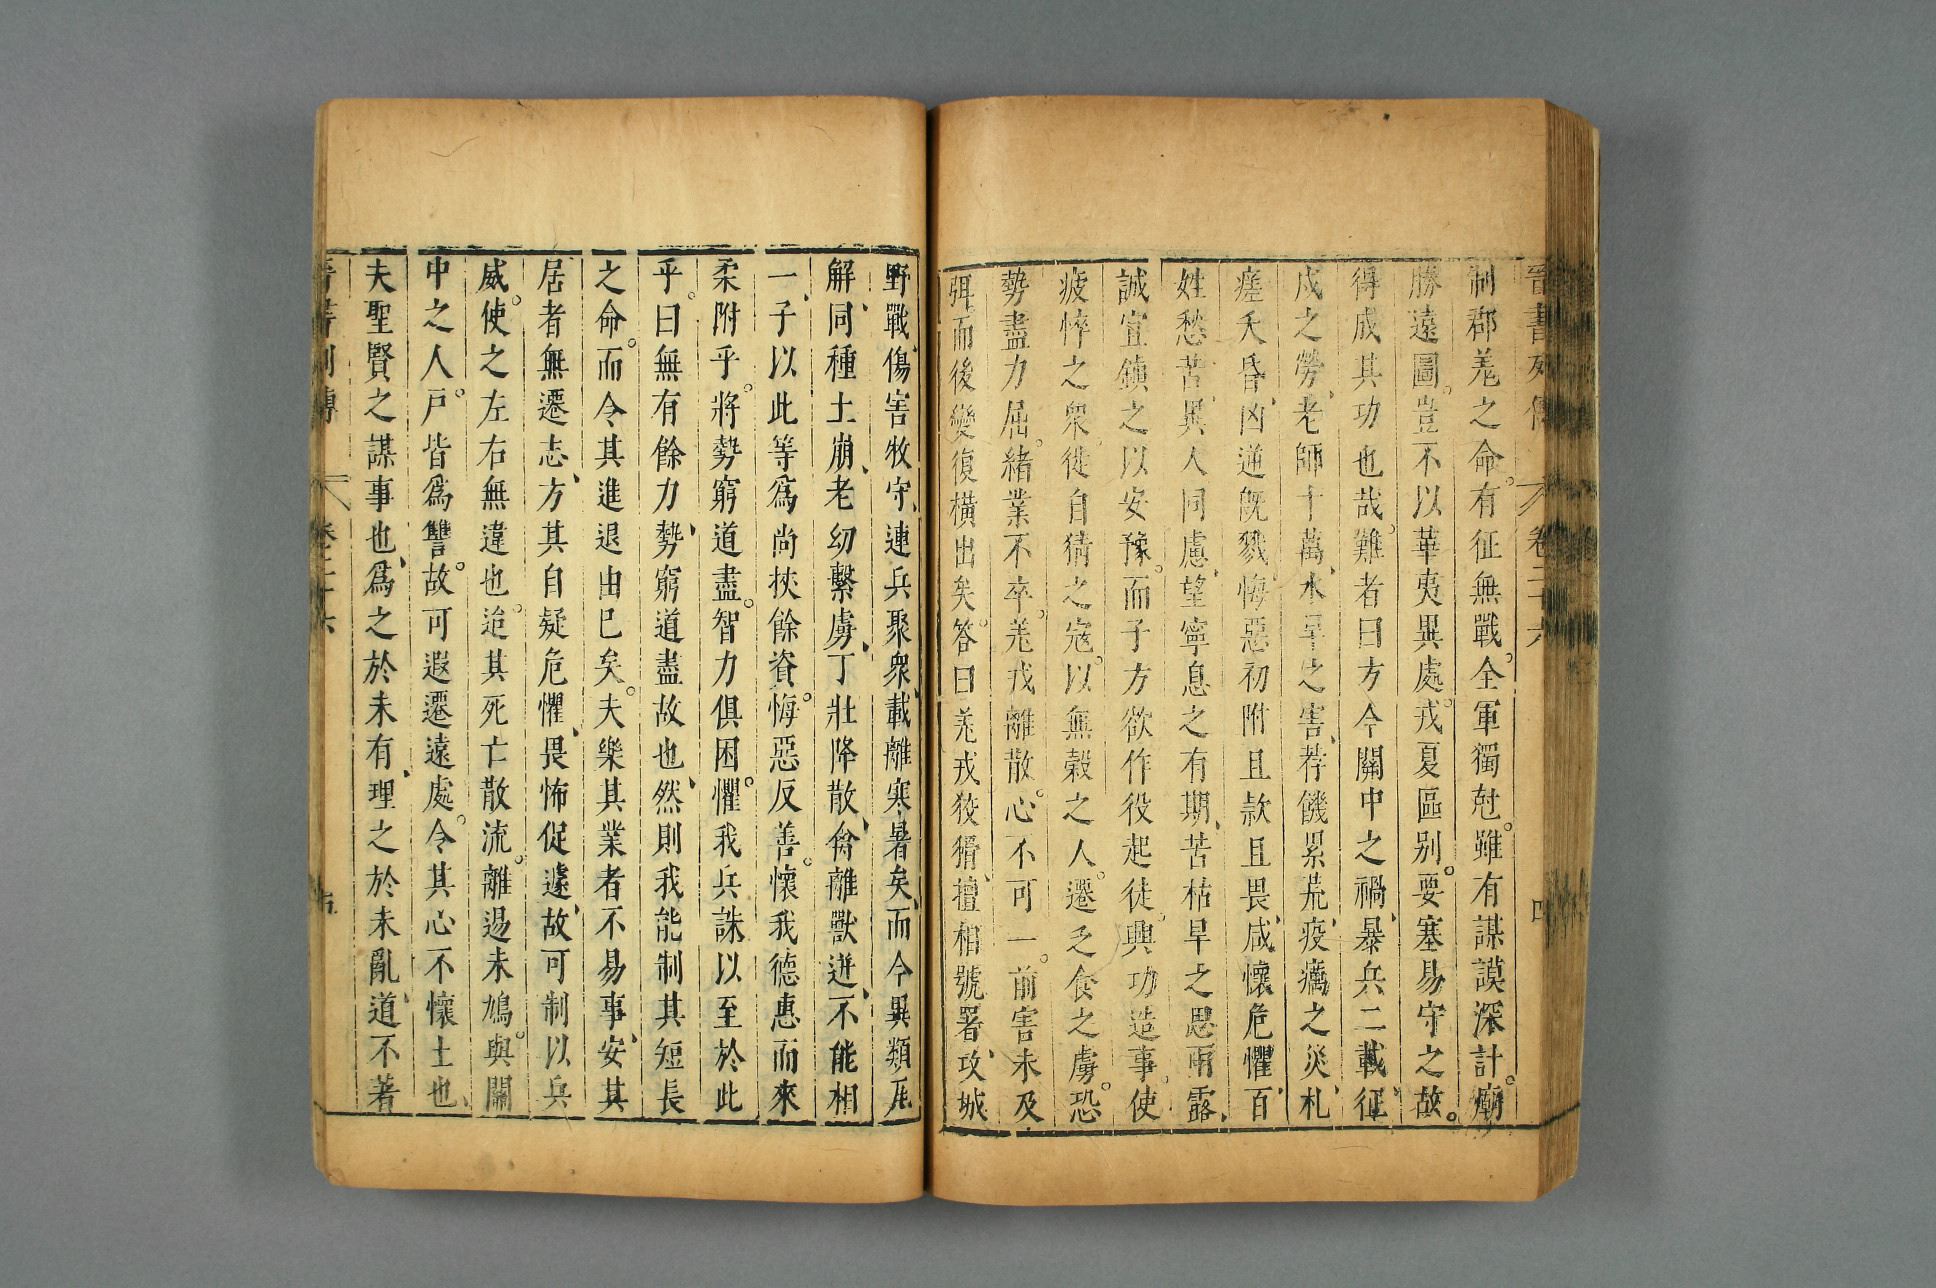 晉書列傳 卷二十六 四
制郡羌之命。有征無戰。全軍獨尅。雖有謀謨深計。廟
勝遠圖。豈不以華夷異處。戎夏區别。要塞易守之故。
得成其功也哉。難者曰方今關中之禍、暴兵二載、征
戍之勞、老師十萬、水旱之害、荐饑累荒、疫癘之災、札
瘥夭昏、凶逆既戮、悔惡初附、且款且畏、咸懷危懼、百
姓愁苦、異人同慮、望寧息之有期、若枯旱之思雨露、
誠宜鎮之以安豫。而子方欲作役起徒、興功造事、使
疲悴之衆、徙自猜之寇。以無穀之人。遷乏食之虜。恐
勢盡力屈。緒業不卒。羌戎離散。心不可一。前害未及
弭。而後變復橫出矣。答曰羌戎狡猾、擅相號署、攻城
野戰、傷害牧守、連兵聚衆、載離寒暑矣、而今異類瓦
解、同種土崩、老幼繫虜、丁壯降散、禽離獸迸、不能相
一、子以此等爲尚挾餘資。悔惡反善。懷我德惠而來
柔附乎。將勢窮道盡。智力俱困。懼我兵誅以至於此
乎。曰無有餘力、勢窮道盡故也、然則我能制其短長
之命。而令其進退由已矣。夫樂其業者不易事、安其
居者無遷志、方其自疑危懼、畏怖促遽、故可制以兵
威。使之左右無違也。迨其死亡散流。離逷未鳩。與關
中之人戸。皆爲讐。故可遐遷遠處。令其心不懷土也、
夫聖賢之謀事也、爲之於未有、理之於未亂、道不著
晉書列傳 卷二十六 五